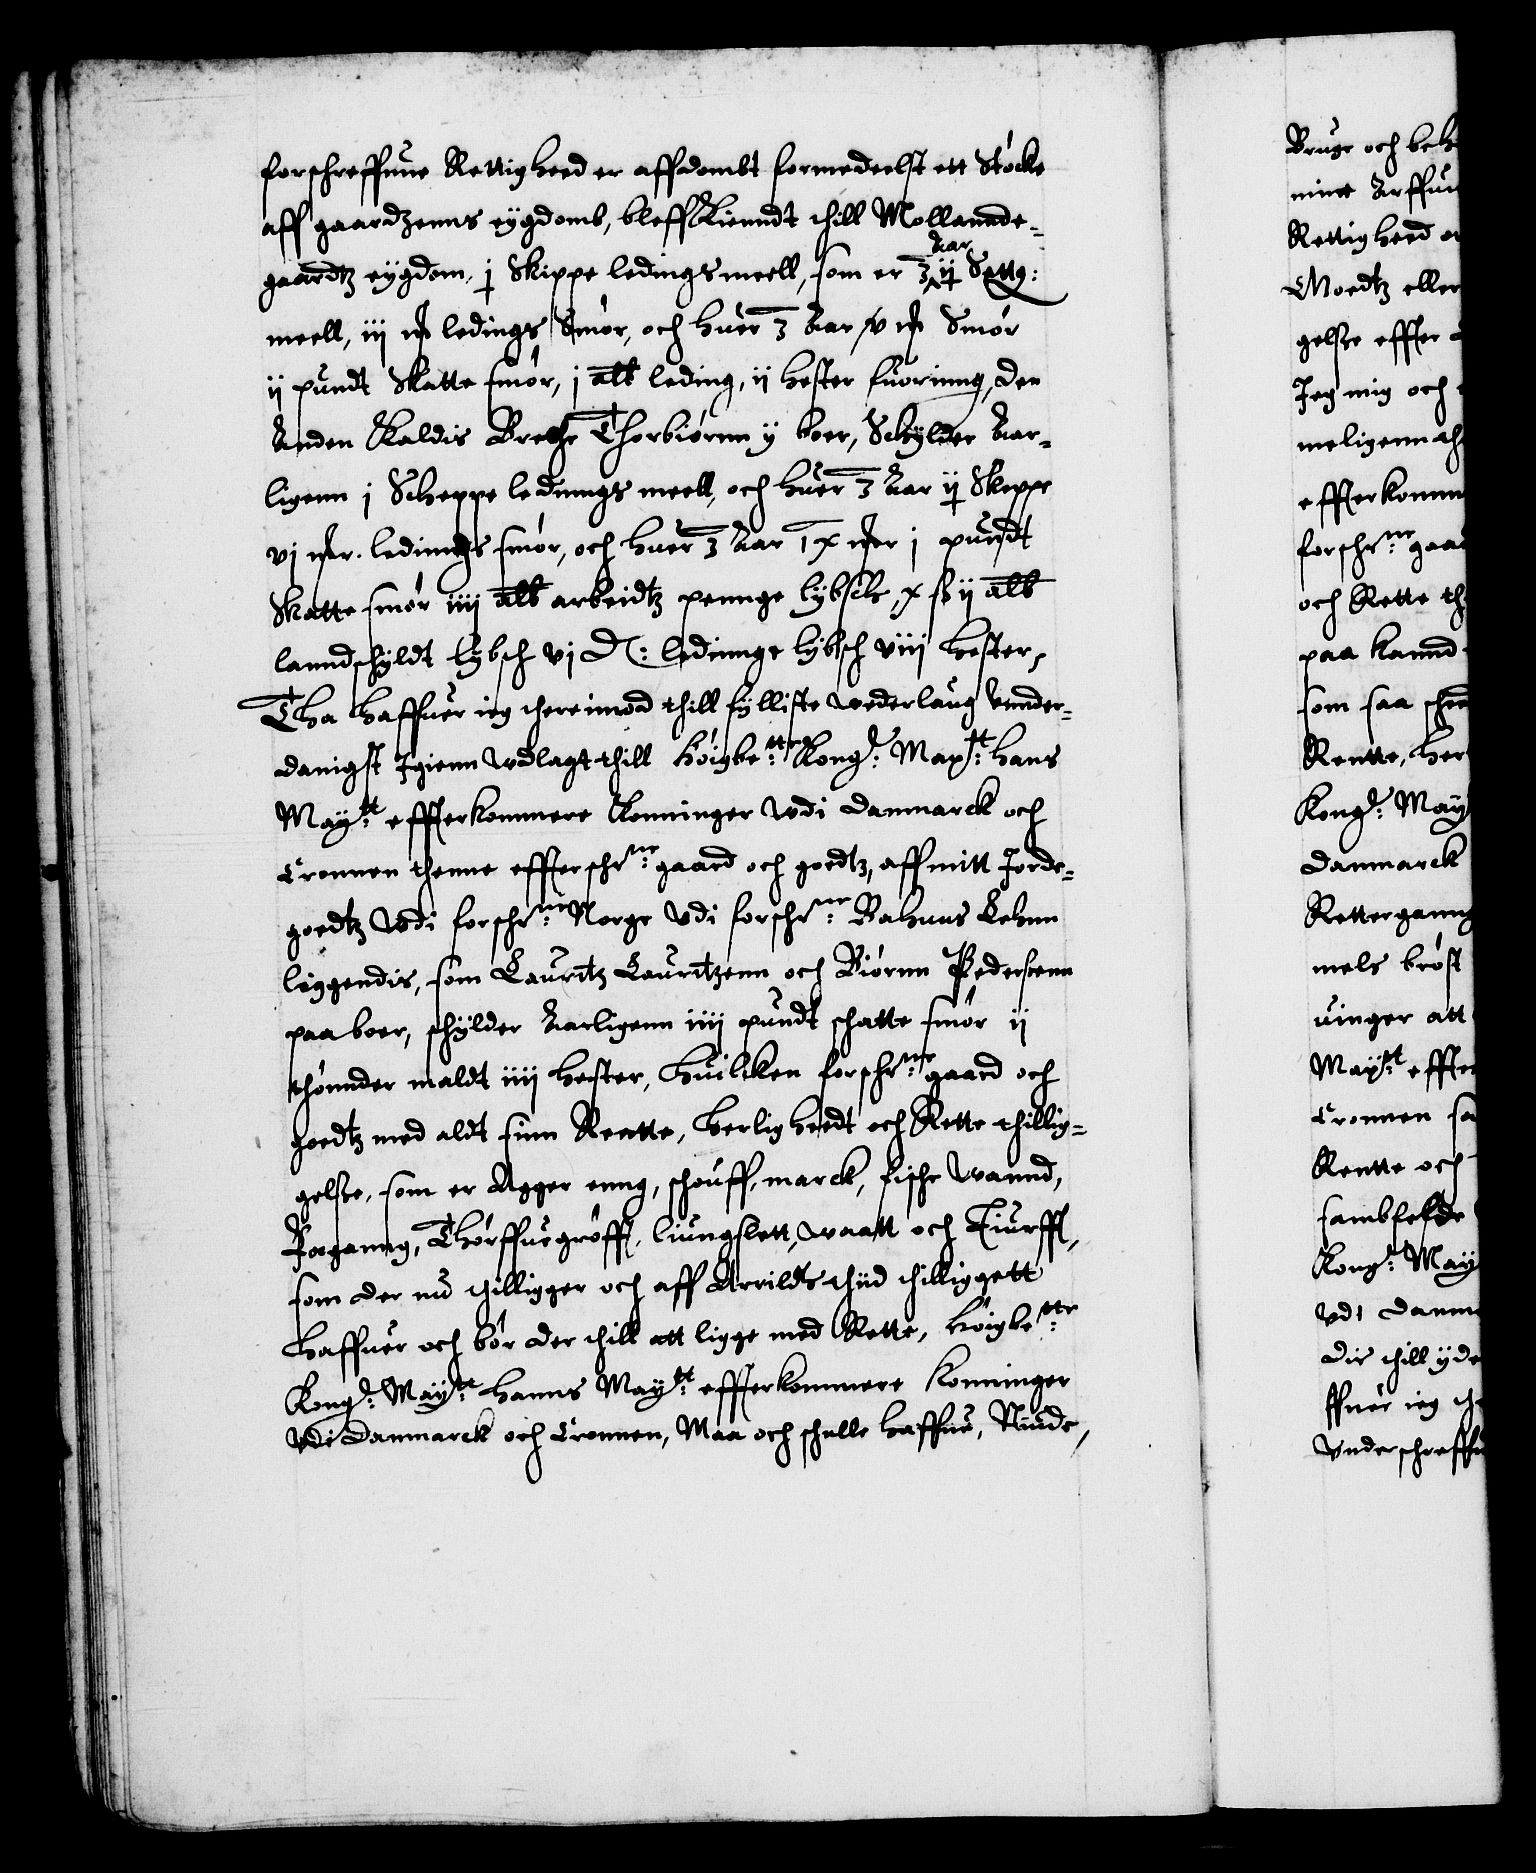 forschreffnne Rettigheed er affdombt formedelst ett Støcke
aff gaardzenns eygdomb, bleff Kienndt thill Mollannde-
gaardtz eygdom, j Skippe ledings meell, som er 3 Aar ij Setts:
meell, iij  ledings Smør, och huer 3 Aar v  Smør
ij pundt Skatte smør, j alb leding, ij hester fuorinng, den
Anden Kaldis Brecke Thorbiørnn y boer, Schylder Aar-
ligenn j Scheppe lednngs meell, och huer 3 Aar ij Skeppe
vj mr. ledinngs smør, och huer 3 Aar ix mr j pundt
Skatte smør iiij alb arbeidtz pennge lybsck, x ß ij alb
lanndschyldt lybsch vj D: ledinnge lybsch viij hester,
Tha haffuer ieg thereimod thill fylliste wederlaug vnnder-
danigst Igienn wdlagt thill høigbe:tte Kong: May:tt hans
May:tt effterkommere Konninger wdi Danmarck och
Cronnen thenne effterschr:ne gaard och goedtz, aff mitt Jorde-
goedtz wdi forschr:ne Norge vdi forschr:ne Bahuus Lehnn
liggendis, som Lauritz Lauritzenn och Biørnn Pedersenn
paa boer, schylder Aarligenn iiij pundt schatte smør ij
thønnder maldt iiij hester, Huilcken forschr:ne gaard och
goedtz med aldt sinn Rentte, herligheedt och Rette thillig-
gelsse, som er Agger enng, schouff, marck, fische wannd,
Foegang, Thørffuegrøfft, liungslett, waatt och Tiurtt,
som der nu thilligger och aff Arrildts thiid thilliggett
haffuer och bør der thill att ligge med Rette, høigbe:tte
Kong: May:tt hanns May:tt effterkommere Konninger
vdi Danmarck och Cronnen, Maa och schulle haffue, Niude,
Bruge och beh
mine Arffui
Rettigheed
Moedtz eller
gelsse effter
Jeg mig och
meligenn
effterkomm
forschr:ne gaa
och Rette th
paa
som saa
Rentte, her
Kong: May
Danmarck
Retterganng
mels brøst
uinger att
May:tt effter
Cronnen sa
Rentte och
sambfelde
Kong: May
vdi Danm
dis thill yde
ffuer ieg
vnderschreffu